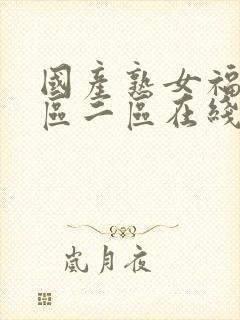 國產熟女福
區二區在綫
嵐月夜